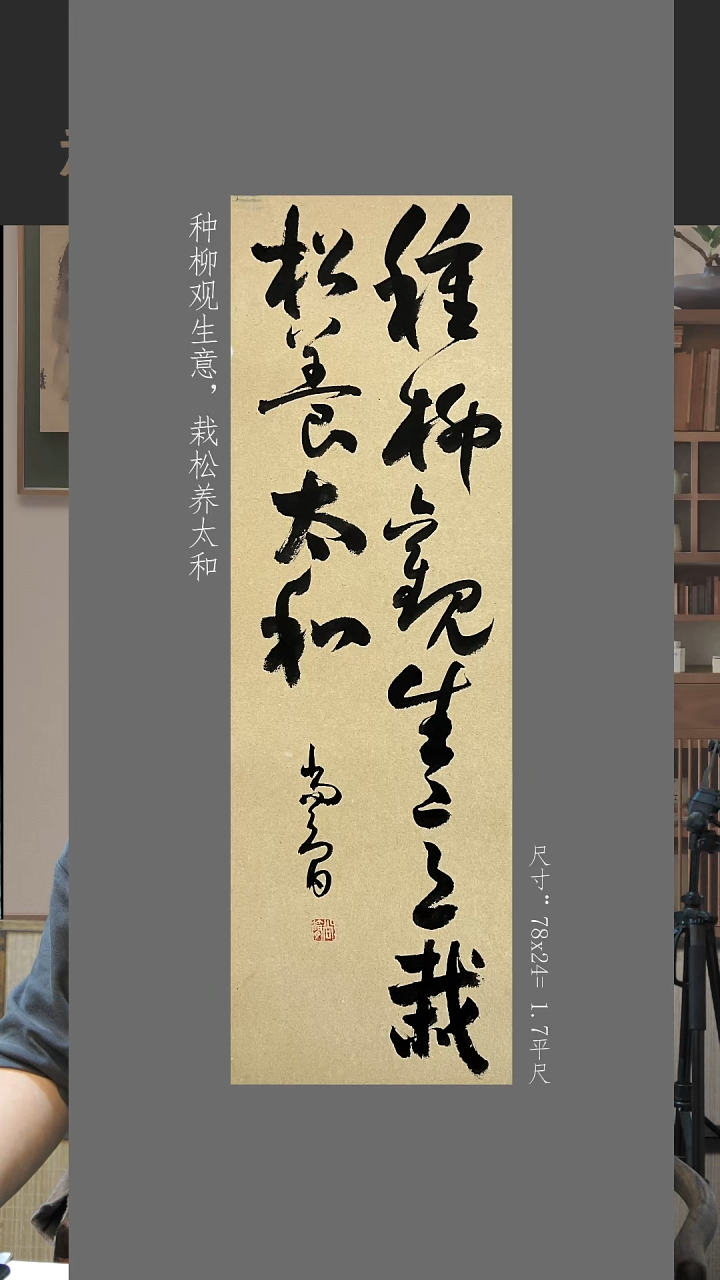 種柳觀生意栽
松養太和
种柳观生意，栽松养太和
尺寸：78x24=1.7平尺